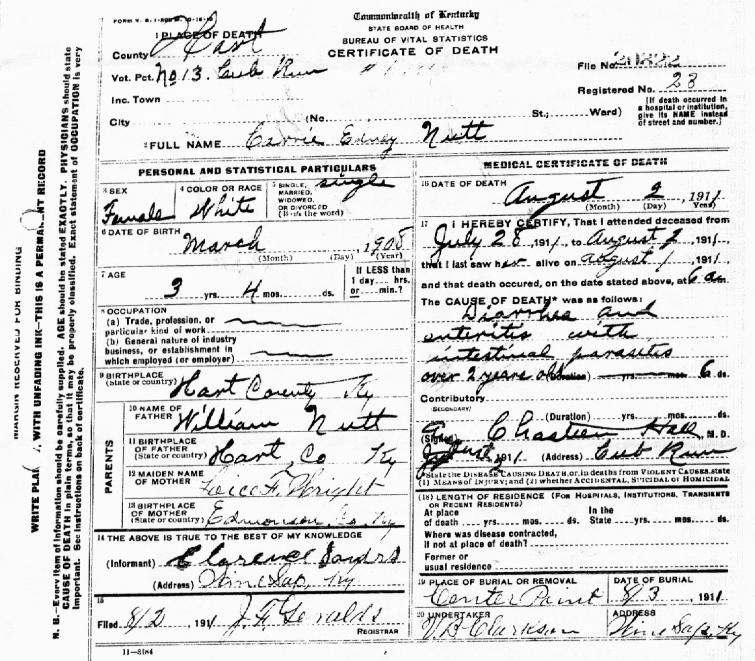 Commonwealth of Kentucky
STATE BOARD OF HEALTH
BUREAU OF VITAL STATISTICS
CERTIFICATE OF DEATH
1 PLACE OF DEATH
County Hart
Vot. Pct. No 13. Cub Run
Inc. Town
City (No. St.; Ward)
File No.
Registered No. 28
(If death occurred in a hospital or institution, give its NAME instead of street and number.)
2 FULL NAME Carrie Edney Nutt
PERSONAL AND STATISTICAL PARTICULARS
3 SEX
Female
4 COLOR OR RACE
White
5 SINGLE, MARRIED, WIDOWED, OR DIVORCED (Write the word)
single
6 DATE OF BIRTH
March , 1908
(Month) (Day) (Year)
7 AGE
3 yrs. 4 mos. ds.
If LESS than 1 day hrs. or min.?
8 OCCUPATION
(a) Trade, profession, or particular kind of work
(b) General nature of industry business, or establishment in which employed (or employer)
9 BIRTHPLACE (State or country) Hart County Ky
PARENTS
10 NAME OF FATHER William Nutt
11 BIRTHPLACE OF FATHER (State or country) Hart Co Ky
12 MAIDEN NAME OF MOTHER F. Wright
13 BIRTHPLACE OF MOTHER (State or country) Edmonson, Co, Ky
14 THE ABOVE IS TRUE TO THE BEST OF MY KNOWLEDGE
(Informant) Clarence
(Address) Wine Sap, Ky
15
Filed 8/2 , 191 J. F. Geralds
REGISTRAR
11-8184
MEDICAL CERTIFICATE OF DEATH
16 DATE OF DEATH
August 2 , 1911
(Month) (Day) (Year)
17 I HEREBY CERTIFY, That I attended deceased from
July 28 , 1911, to August 2 , 1911
that I last saw her alive on August 1 , 1911,
and that death occured, on the date stated above, at 6 am
The CAUSE OF DEATH* was as follows:
Diarrhea and
enteritis with
intestinal parasites
over 2 years old (Duration) yrs. mos. 6 ds.
Contributory
(SECONDARY)
(Duration) yrs. mos. ds.
(Signed) Chastien Hall M. D.
191 (Address) Cub Run
*State the DISEASE CAUSING DEATH, or, in deaths from VIOLENT CAUSES, state
(1) MEANS OF INJURY; and (2) whether ACCIDENTAL, SUICIDAL or HOMICIDAL
(18) LENGTH OF RESIDENCE (FOR HOSPITALS, INSTITUTIONS, TRANSIENTS OR RECENT RESIDENTS)
At place of death yrs. mos. ds. In the State yrs. mos. ds.
Where was disease contracted, if not at place of death?
Former or usual residence
19 PLACE OF BURIAL OR REMOVAL
Center Point
DATE OF BURIAL
8/3 , 1911
20 UNDERTAKER
V B Clarkson
ADDRESS
Wine Sap, Ky
MARGIN RESERVED FOR BINDING
WRITE PLAI , WITH UNFADING INK—THIS IS A PERMA NT RECORD
N. B.—Every item of information should be carefully supplied. AGE should be stated EXACTLY. PHYSICIANS should state
CAUSE OF DEATH in plain terms, so that it may be properly classified. Exact statement of OCCUPATION is very
important. See instructions on back of certificate.